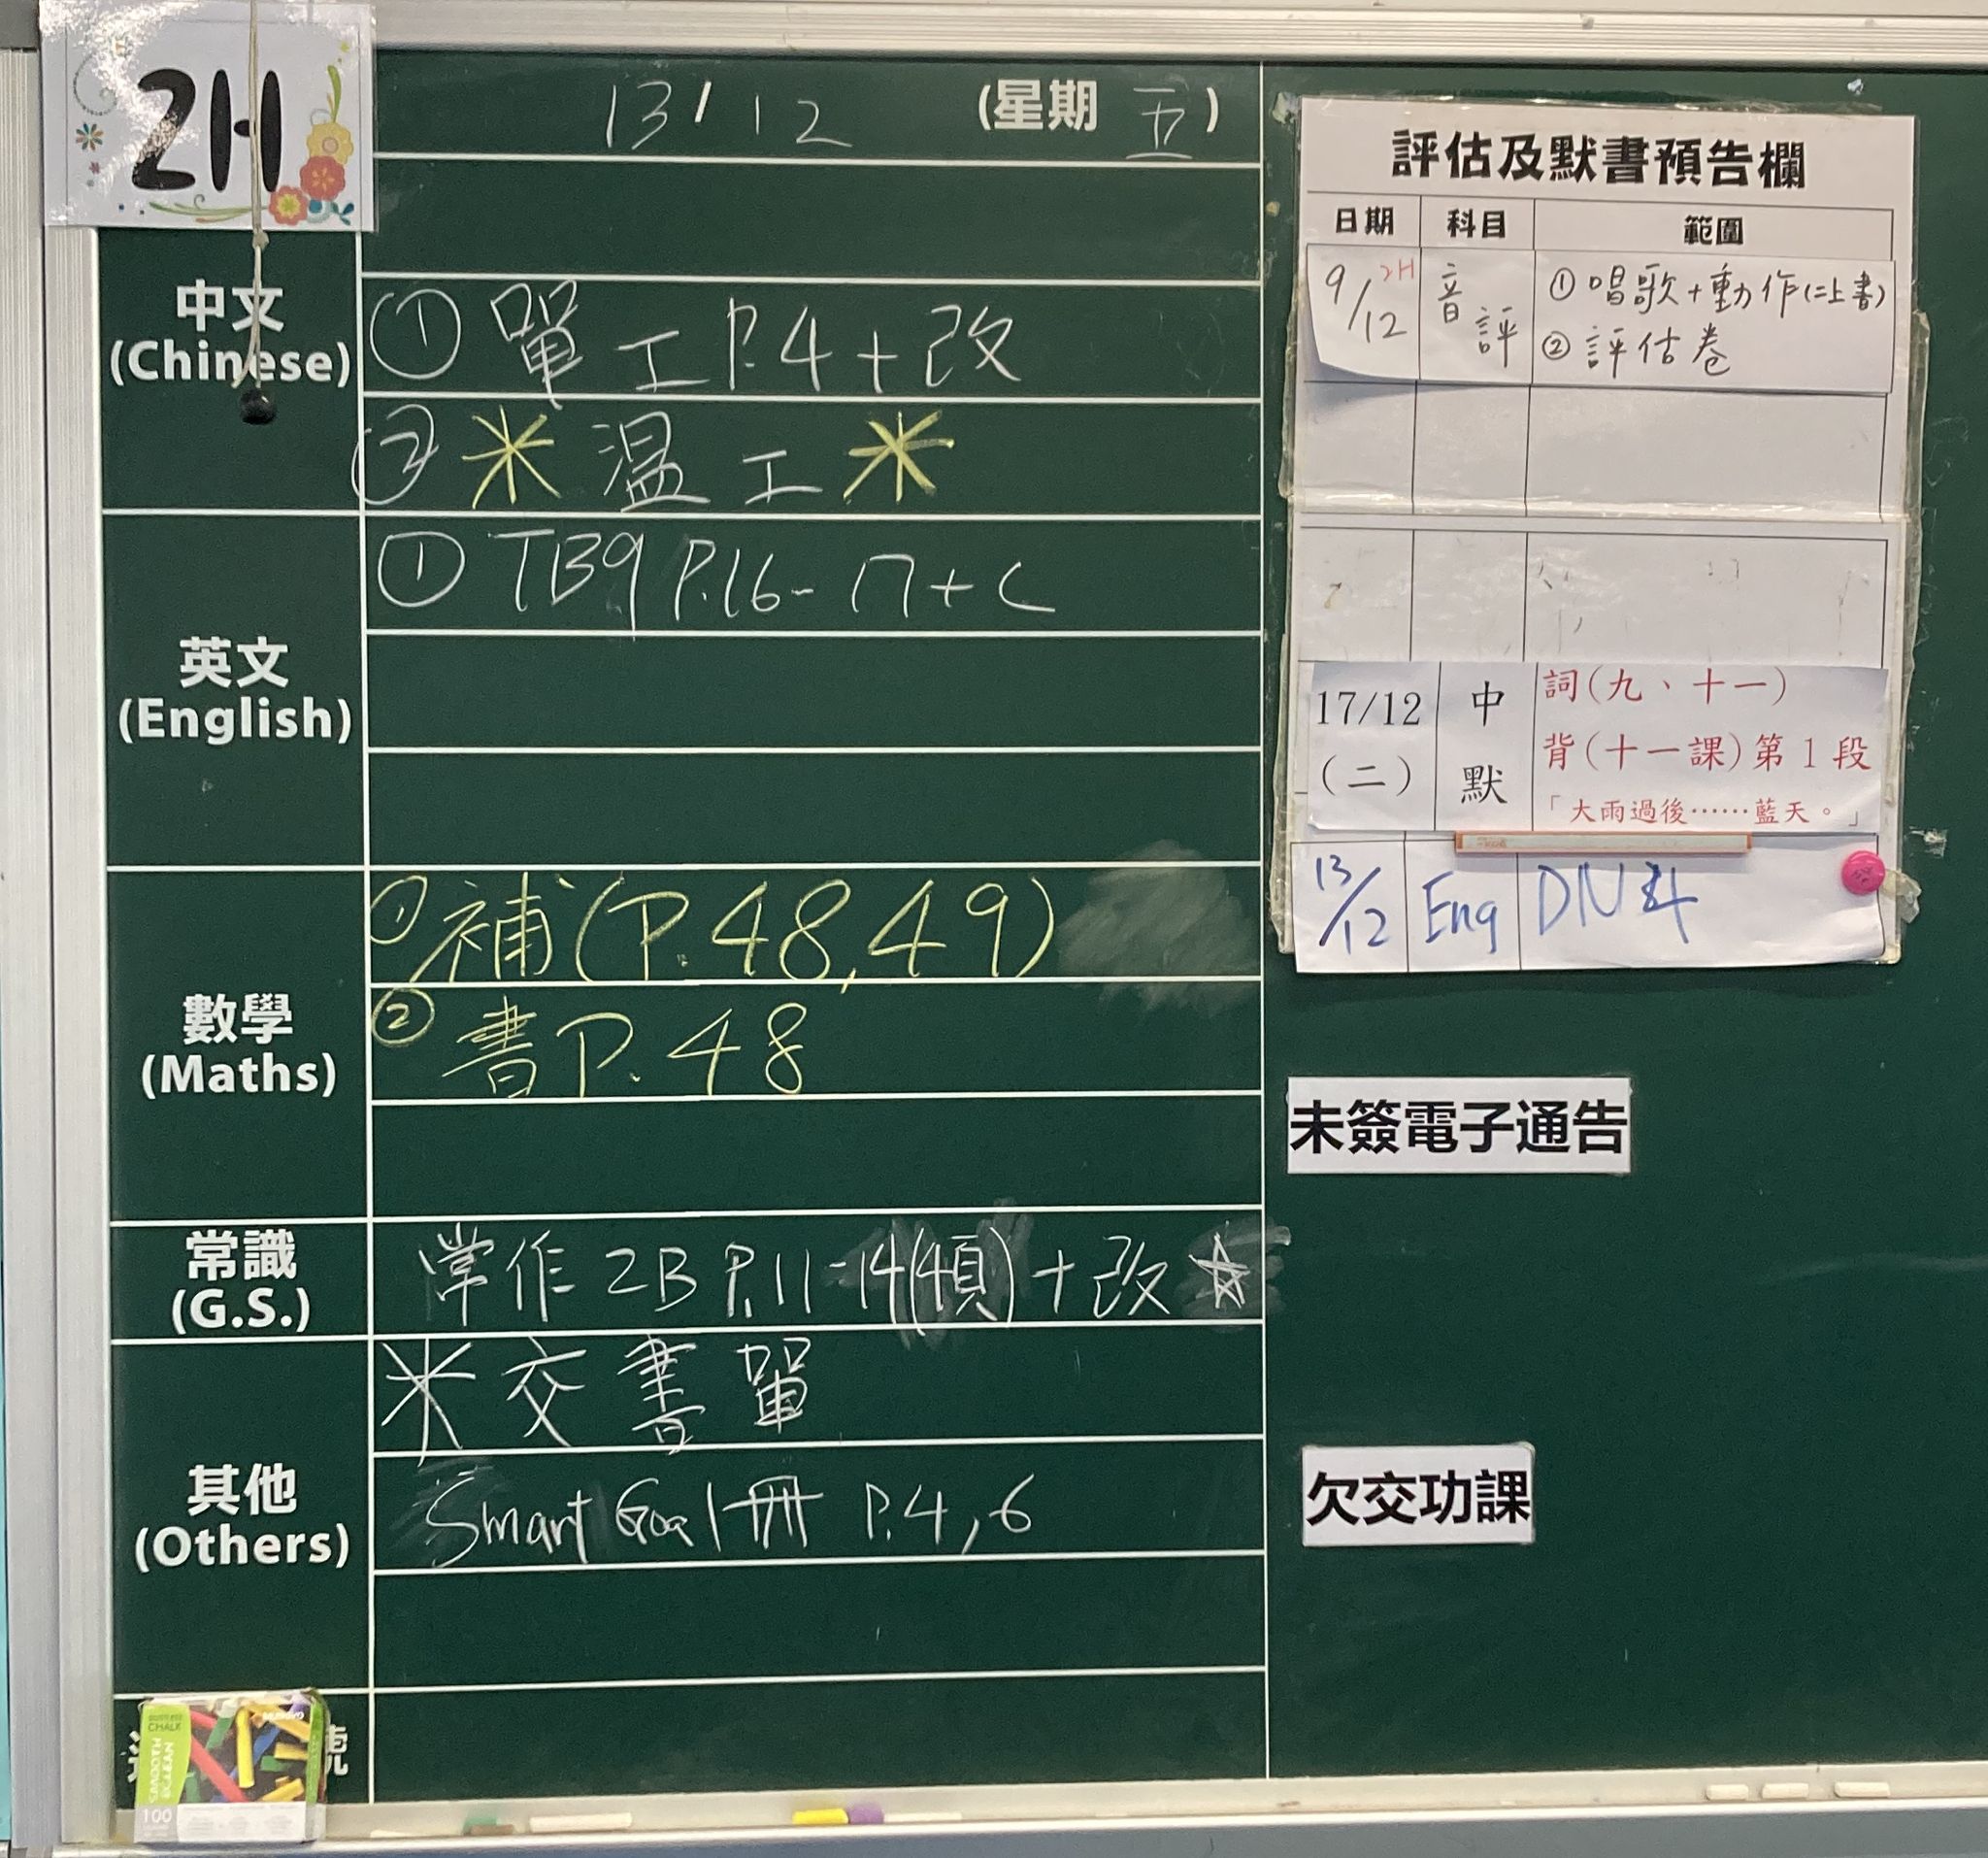 2H
13/12 (星期 五)
中文
(Chinese)
① 單工 P.4 + 改
② ＊ 温工 ＊
英文
(English)
① TB9 P.16-17 + C
數學
(Maths)
① 補 (P.48,49)
② 書 P.48
常識
(G.S.)
常作 2B P.11-14(4頁) + 改 ☆
其他
(Others)
＊交書單
Smart Goal冊 P.4,6
號
CHALK
100
評估及默書預告欄
日期 科目 範圍
9/12 2H 音評 ① 唱歌+動作(二上書)
② 評估卷
17/12 (二) 中默 詞(九、十一)
背(十一課)第1段
「大雨過後……藍天。」
13/12 Eng DN 4
未簽電子通告
欠交功課